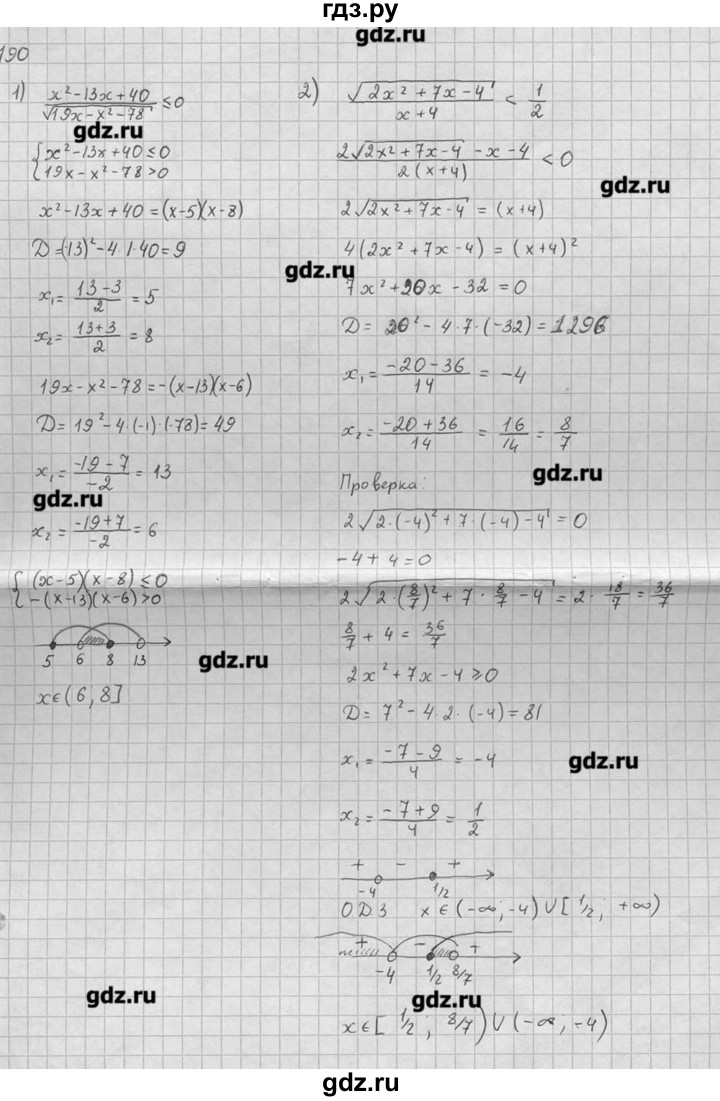 гдз.ру
gdz.ru
190
1) x²-13x+40 / √(19x-x²-78) ≤ 0
gdz.ru
{ x²-13x+40 ≤ 0
{ 19x-x²-78 > 0
x²-13x+40 = (x-5)(x-8)
D = (-13)²-4·1·40 = 9
x₁ = (13-3)/2 = 5
x₂ = (13+3)/2 = 8
19x-x²-78 = -(x-13)(x-6)
D = 19²-4·(-1)·(-78) = 49
x₁ = (-19-7)/-2 = 13
gdz.ru
x₂ = (-19+7)/-2 = 6
{ (x-5)(x-8) ≤ 0
{ -(x-13)(x-6) > 0
5 6 8 13
gdz.ru
x∈(6,8]
gdz.ru
2) √(2x²+7x-4) / (x+4) < 1/2
(2√(2x²+7x-4) -x-4) / 2(x+4) < 0
gdz.ru
2√(2x²+7x-4) = (x+4)
4(2x²+7x-4) = (x+4)²
gdz.ru
7x²+20x-32 = 0
D = 20²-4·7·(-32) = 1296
x₁ = (-20-36)/14 = -4
x₂ = (-20+36)/14 = 16/14 = 8/7
gdz.ru
Проверка:
2√(2·(-4)²+7·(-4)-4) = 0
-4+4=0
2√(2·(8/7)²+7·8/7-4) = 2·18/7 = 36/7
8/7+4 = 36/7
2x²+7x-4 ≥ 0
D = 7²-4·2·(-4) = 81
x₁ = (-7-9)/4 = -4
gdz.ru
x₂ = (-7+9)/4 = 1/2
+ - +
-4 1/2
ОДЗ x∈(-∞;-4)∪[1/2; +∞)
+ - +
-4 1/2 8/7
gdz.ru
x∈[1/2; 8/7)∪(-∞;-4)
gdz.ru